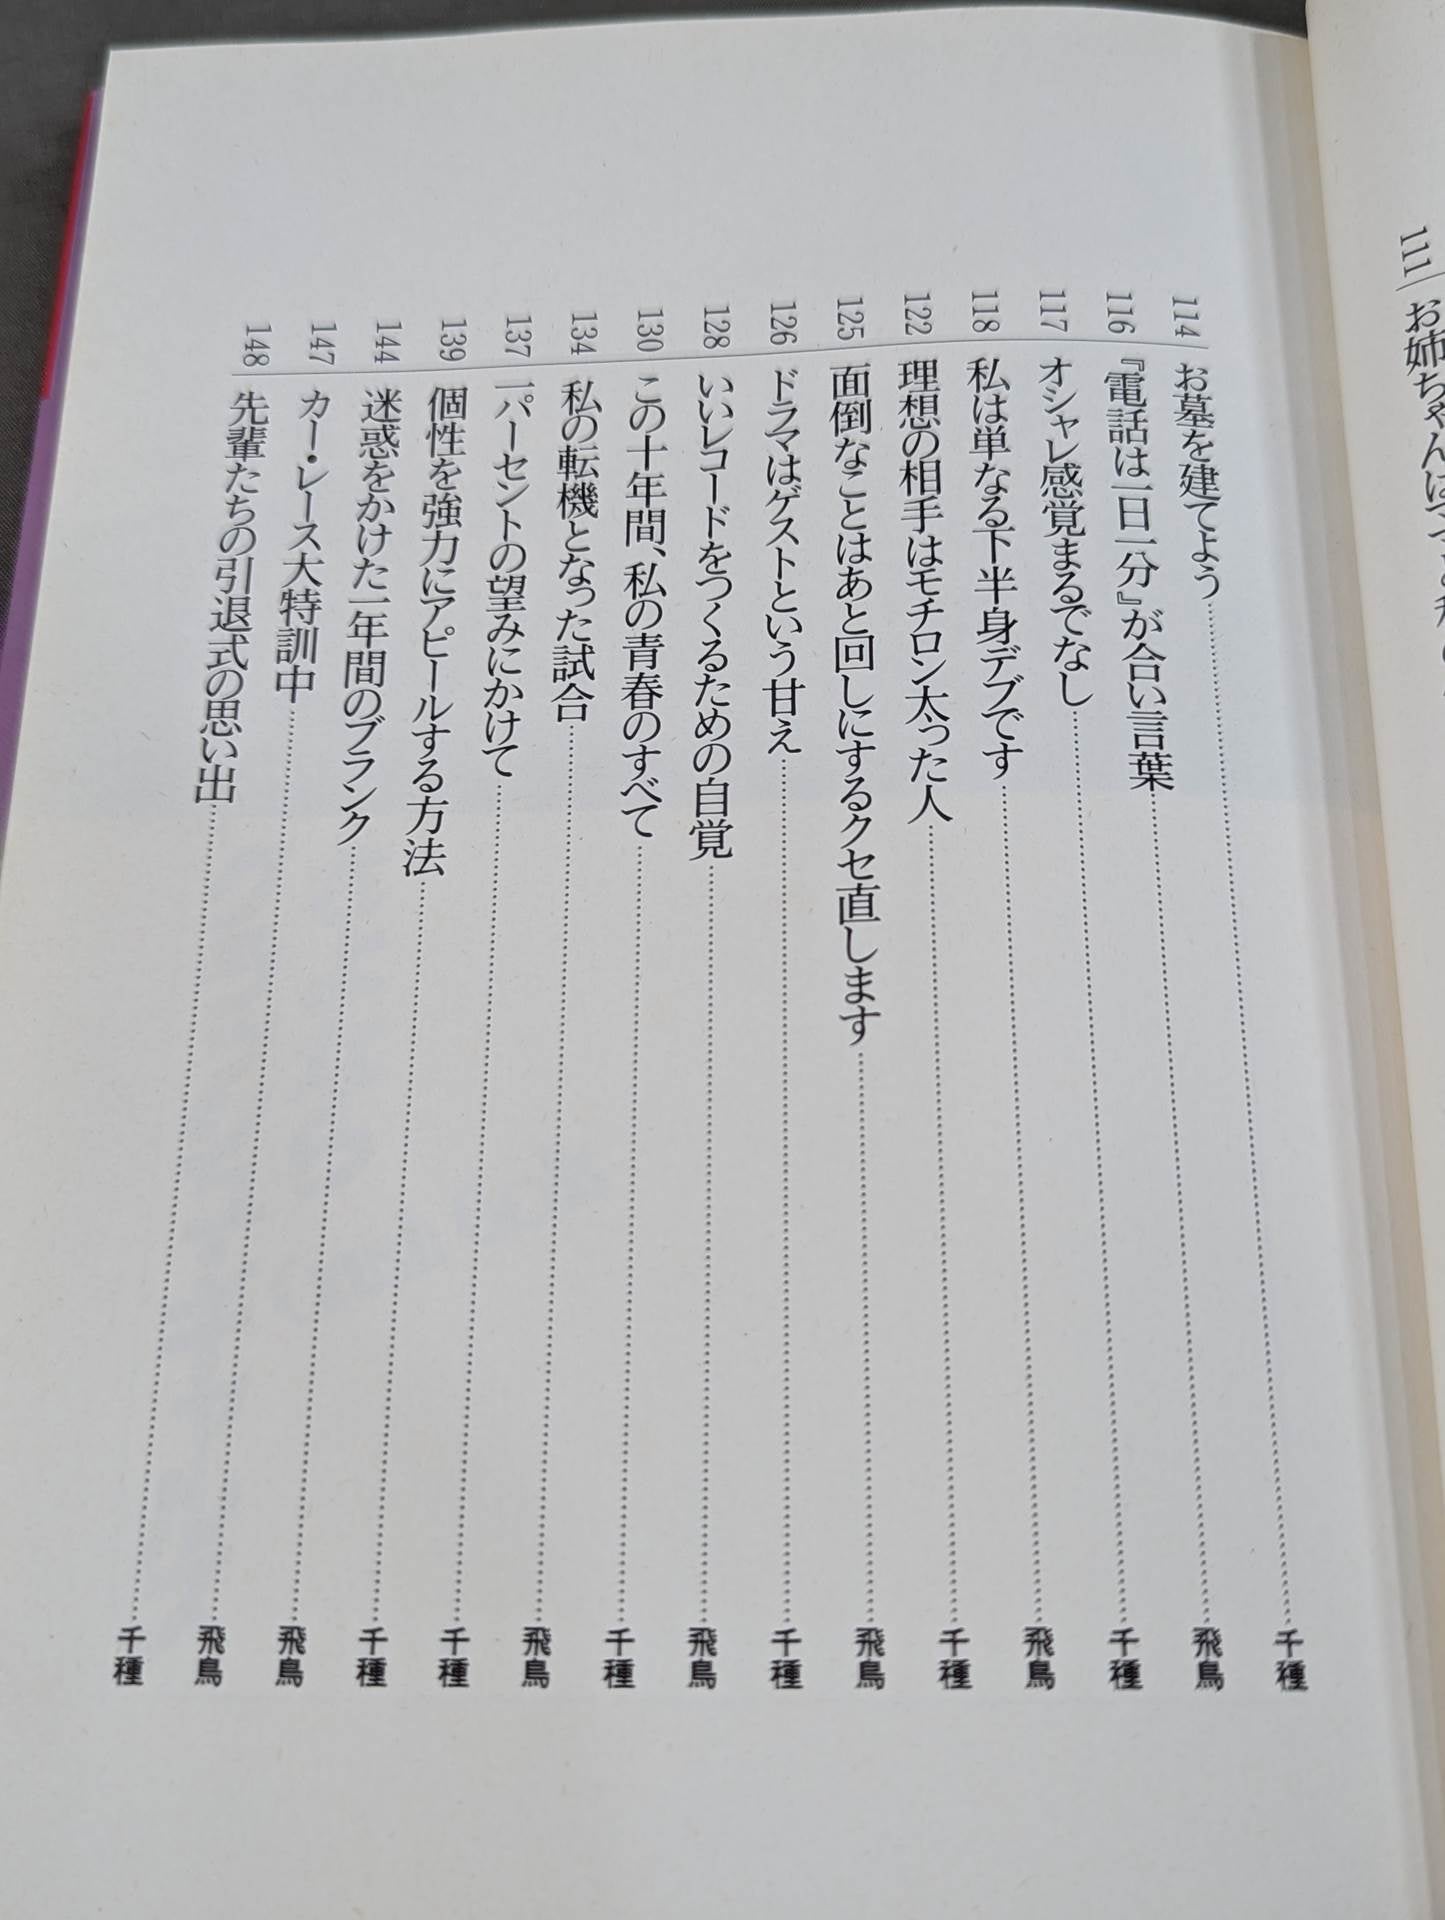 111 お姉ちゃんは
114 お墓を建てよう……千種
116 『電話は一日一分』が合い言葉……飛鳥
117 オシャレ感覚まるでなし……千種
118 私は単なる下半身デブです……飛鳥
122 理想の相手はモチロン太った人……千種
125 面倒なことはあと回しにするクセ直します……飛鳥
126 ドラマはゲストという甘え……千種
128 いいレコードをつくるための自覚……飛鳥
130 この十年間、私の青春のすべて……千種
134 私の転機となった試合……飛鳥
137 一パーセントの望みにかけて……千種
139 個性を強力にアピールする方法……千種
144 迷惑をかけた一年間のブランク……飛鳥
147 カー・レース大特訓中……飛鳥
148 先輩たちの引退式の思い出……千種